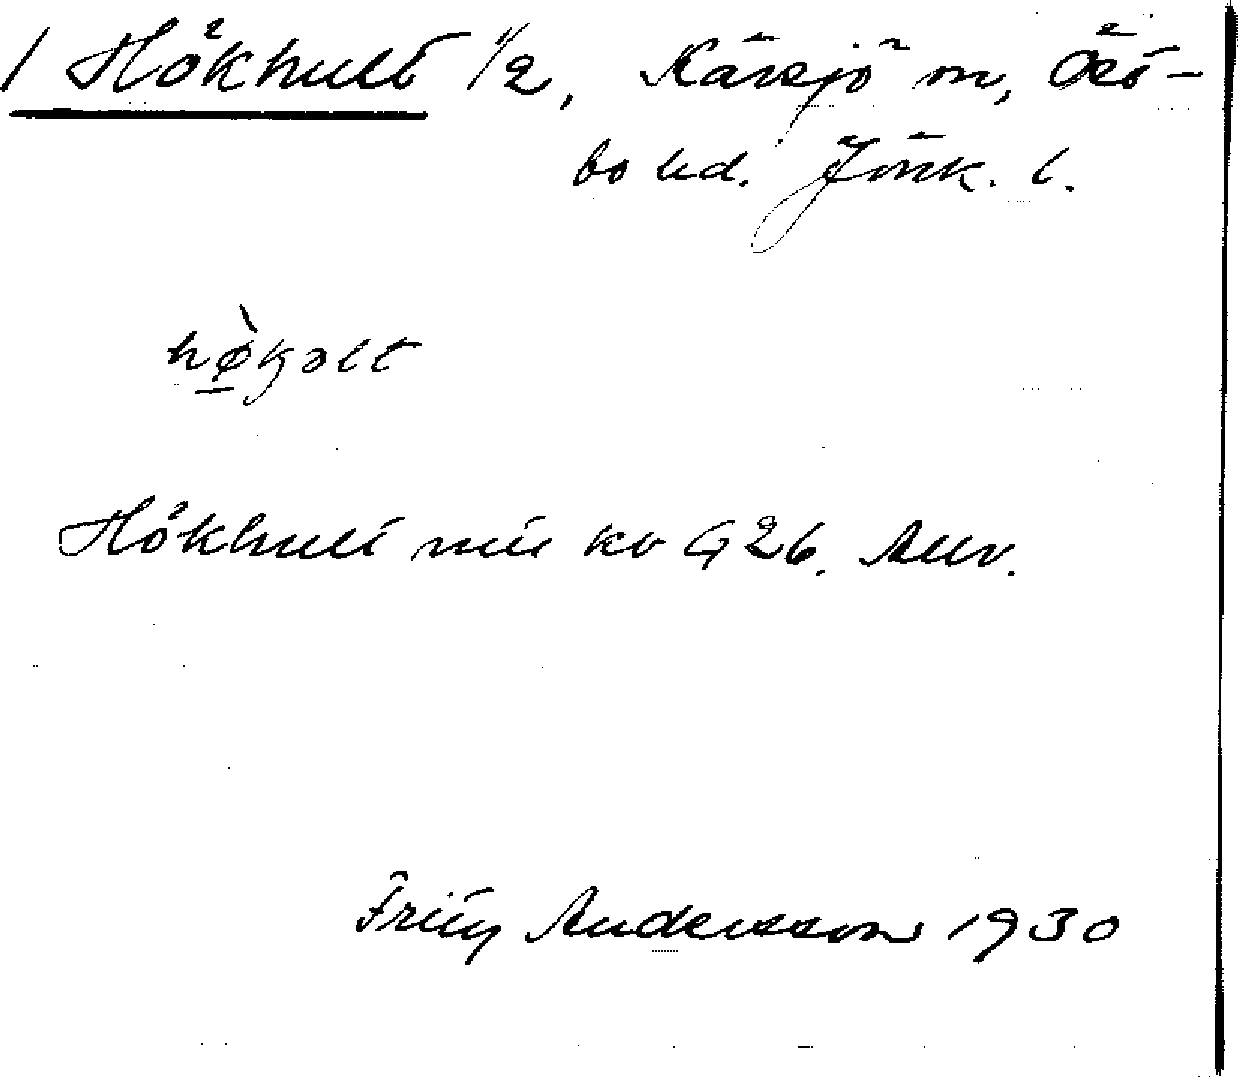 1 Hökhult 1/2, Kärsjö sn, Öst-
bo hd. Jönk. l.
hø̀kəlt
Hökhult mtl kv G 26. Allv.
Fritz Andersson 1930